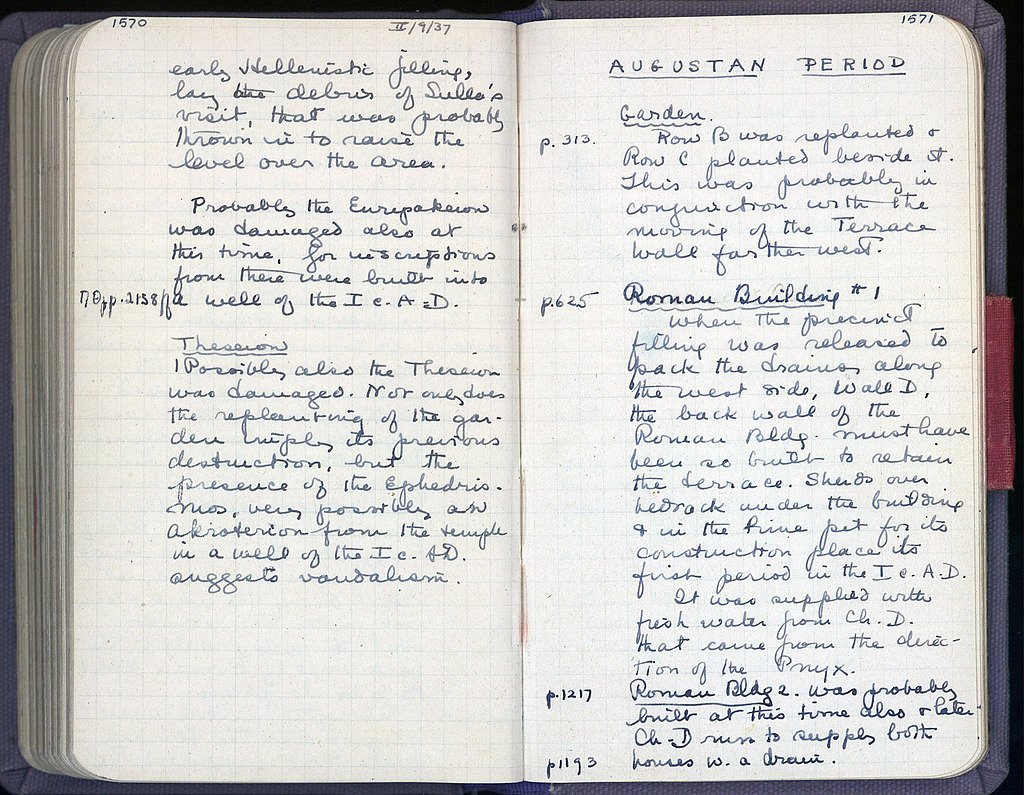 1570
II/9/37
early Hellenistic filling,
lay the debris of Sulla's
visit, that was probably
thrown in to raise the
level over the area.
Probably the Eurysakeion
was damaged also at
this time, for inscriptions
from there were built into
p. 2138 a well of the I c. A.D.
Theseion
Possibly also the Theseion
was damaged. Not only does
the replanting of the gar-
den imply its previous
destruction, but the
presence of the Ephedris-
mos, very possibly an
Akroterion from the temple
in a well of the I c. A.D.
suggests vandalism.
1571
AUGUSTAN PERIOD
Garden.
p. 313. Row B was replanted &
Row C planted beside it.
This was probably in
conjunction with the
moving of the Terrace
Wall farther west.
p. 625 Roman Building #1
When the precinct
filling was released to
pack the drains along
the west side, Wall D,
the back wall of the
Roman Bldg. must have
been so built to retain
the terrace. Sherds over
bedrock under the building
& in the lime pit for its
construction place its
first period in the I c. A.D.
It was supplied with
fresh water from Ch. D.
that came from the direc-
tion of the Pnyx.
p. 1217 Roman Bldg 2. was probably
built at this time also & later
Ch-D runs to supply both
p1193 houses w. a drain.